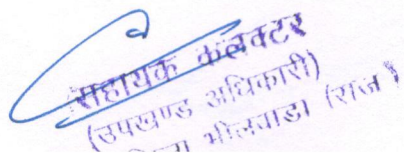 सहायक कलक्टर
(उपखण्ड अधिकारी)
भीलवाडा (राज)